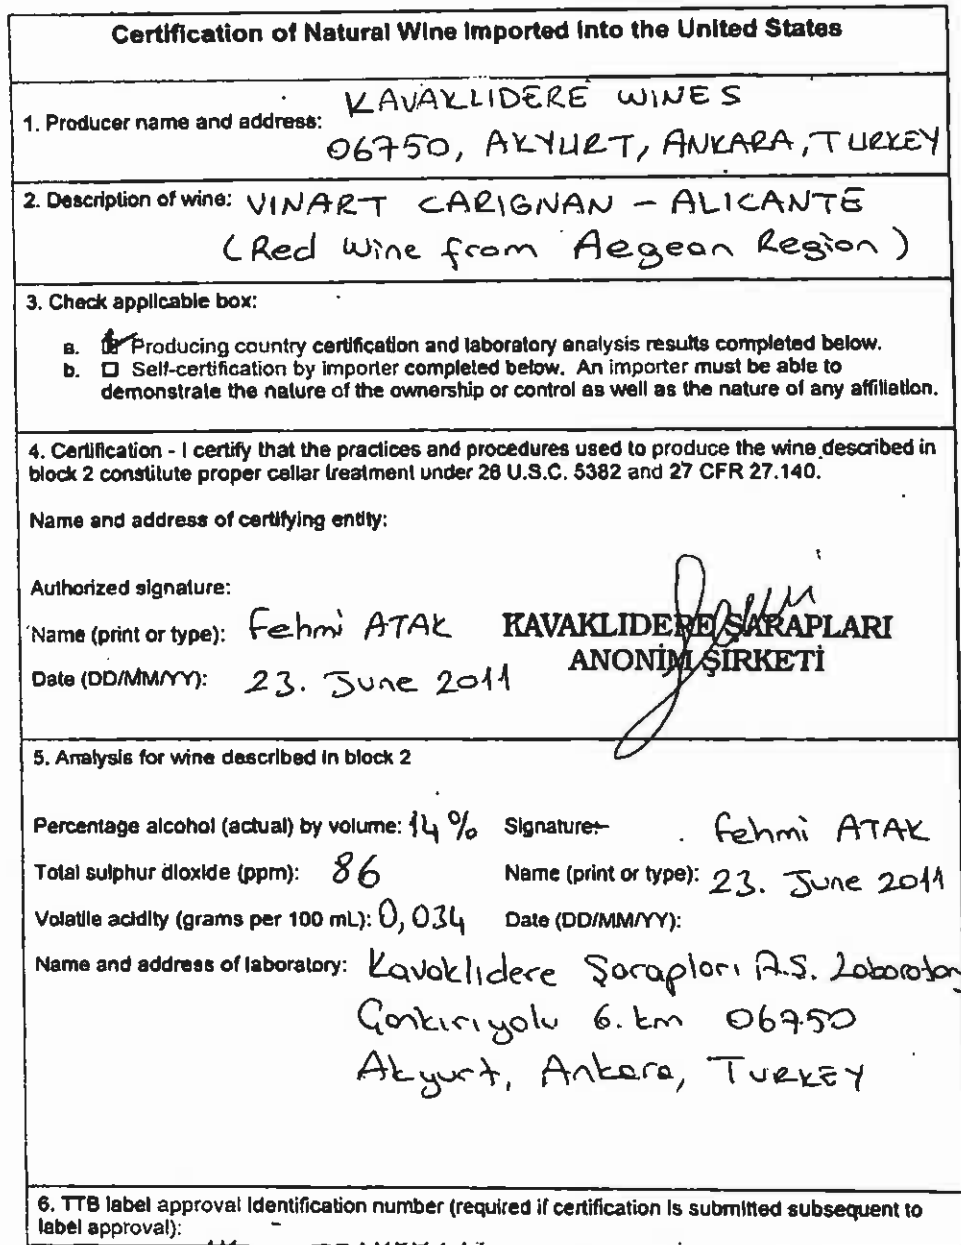 Certification of Natural Wine Imported into the United States
KAVAKLIDERE WINES
1. Producer name and address:
06750, AKYURT, ANKARA, TURKEY
2. Description of wine: VINART CARIGNAN - ALICANTE
(Red Wine from Aegean Region)
3. Check applicable box:
a. Producing country certification and laboratory analysis results completed below.
b. ☐ Self-certification by importer completed below. An importer must be able to
demonstrate the nature of the ownership or control as well as the nature of any affiliation.
4. Certification - I certify that the practices and procedures used to produce the wine described in
block 2 constitute proper cellar treatment under 26 U.S.C. 5382 and 27 CFR 27.140.
Name and address of certifying entity:
Authorized signature:
Name (print or type): Fehmi ATAK KAVAKLIDERE ŞARAPLARI
ANONİM ŞİRKETİ
Date (DD/MM/YY): 23. June 2011
5. Analysis for wine described in block 2
Percentage alcohol (actual) by volume: 14 % Signature: Fehmi ATAK
Total sulphur dioxide (ppm): 86 Name (print or type): 23. June 2011
Volatile acidity (grams per 100 mL): 0,034 Date (DD/MM/YY):
Name and address of laboratory: Kavaklıdere Şarapları A.S. Laboratory
Çankırıyolu 6. km 06750
Akyurt, Ankara, TURKEY
6. TTB label approval identification number (required if certification is submitted subsequent to
label approval):